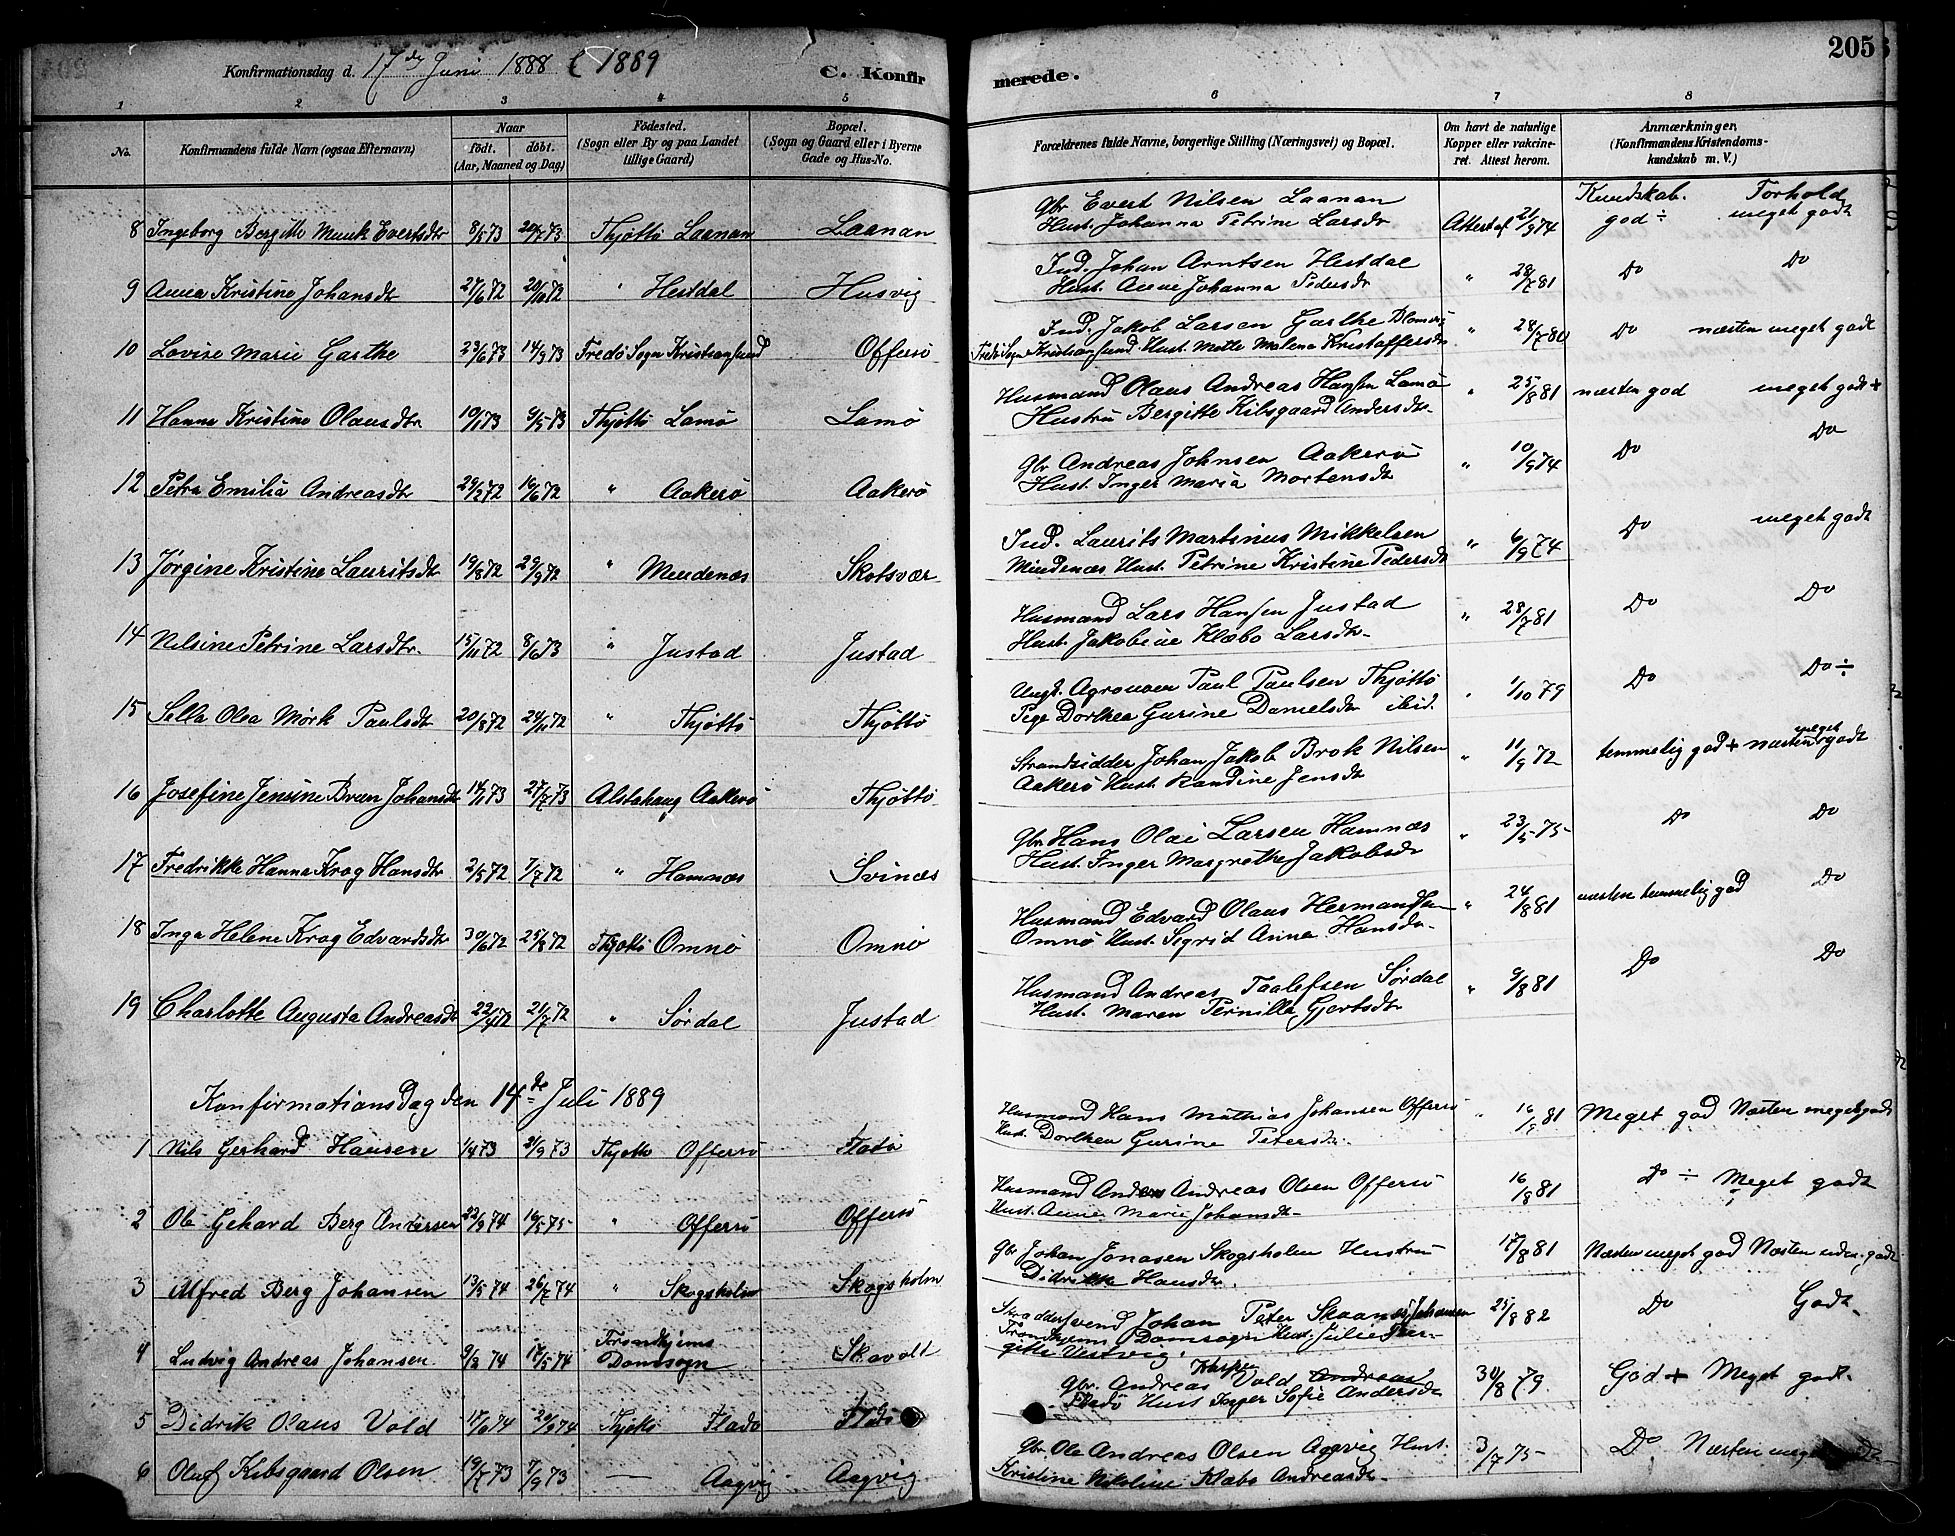 205
Konfirmationsdag d. 17de Juni 1888 & 1889
C. Konfir merede.
1 2 3 4 5 6 7 8
No.
Konfirmandens fulde Navn (ogsaa Efternavn)
Naar
født. døbt.
(Aar, Maaned og Dag)
Fødested.
(Sogn eller By og paa Landet
tillige Gaard)
Bopæl.
(Sogn og Gaard eller i Byerne
Gade og Hus-No.
Forældrenes fulde Navne, borgerlige Stilling (Næringsvei) og Bopæl.
Om havt de naturlige
Kopper eller vakcine-
ret. Attest herom.
Anmærkninger.
(Konfirmandens Kristendoms-
kundskab m. V.)
Kundskab. Forhold
8 Ingeborg Bergitte Munk Evertsdtr 8/5 73 20/7 73 Thjøttø Laanan Laanan
Gbr Evert Nilsen Laanan
Hust. Johanna Petrine Larsdtr Attest af 21/9 74 god ÷ meget godt
9 Anna Kristine Johansdtr 27/6 72 20/10 72 " Hestdal Husvig
Ind. Johan Arntsen Hestdal
Hust. Anne Johanna Pedersdtr " 28/7 81 Do Do
10 Lovise Marie Garthe 23/6 73 14/9 73 Fredø Sogn Kristiansund Offersø
Ind. Jakob Larsen Garthe
Fredø Sogn Kristiansund. Hust. Mette Malena Kristoffersdtr " 28/7 80 Do næsten meget godt
11 Hanna Kristine Olausdtr 10/1 73 6/5 73 Thjøttø Lamø Lamø
Husmand Olaus Andreas Hansen Lamø
Hustru Bergitte Kilsgaard Andersdtr. " 25/8 81 næsten god meget godt +
12 Petra Emilia Andreasdtr 29/2 72 16/6 72 " Aakerø Aakerø
Gbr Andreas Johnsen Aakerø
Hust. Inger Maria Mortensdtr " 10/9 74 Do Do
13 Jørgine Kristine Lauritsdtr 19/8 72 29/9 72 " Mindenæs Skotsvær
Ind. Laurits Martinus Mikkelsen
Mindenæs Hust. Petrine Kristine Pedersdtr " 6/9 74 Do meget godt
14 Nilsine Petrine Larsdtr. 15/11 72 8/6 73 " Justad Justad
Husmand Lars Hansen Justad
Hust. Jakobine Klæbo Larsdtr. " 28/7 81 Do Do
15 Sella Olea Mørk Paulsdtr 20/8 72 24/11 72 " Thjøttø Thjøttø
Ungk. Agronom Paul Paulsen Thjøttø
Pige Dorthea Gurine Danielsdtr ibid. " 1/10 79 Do Do ÷
16 Josefine Jensine Brun Johansdtr 14/1 73 27/7 73 Alstahaug Aakerø Thjøttø
Strandsidder Johan Jakob Brok Nilsen
Aakerø Hust. Randine Jensdtr " 11/9 72 temmelig god + næsten meget godt
17 Fredrikke Hanna Krog Hansdtr 2/5 72 7/7 72 " Hamnæs Svinæs
Gbr Hans Olai Larsen Hamnæs
Hust. Inger Margrethe Jakobsdtr " 23/5 75 Do Do
18 Inga Helene Krog Edvardsdtr 30/6 72 25/8 72 Thjøttø Omnø Omnø
Husmand Edvard Olaus Hermansen
Omnø Hust. Sigrid Anna Hansdtr. " 24/8 81 næsten temmelig god Do
19 Charlotte Augusta Andreasdtr 22/4 72 21/7 72 " Sørdal Justad
Husmand Andreas Taalefsen Sørdal
Hust. Maren Pernilla Gjertsdtr " 9/8 81 Do Do
Konfirmationsdag den 14de Juli 1889
1 Nils Gerhard Hansen 1/4 73 21/9 73 Thjøttø Offersø Fladø
Husmand Hans Mathias Johansen Offersø
Hust. Dorthea Gurine Petersdtr. " 16/8 81 Meget god Næsten meget godt
2 Ole Gehard Berg Andersen 22/9 74 16/5 75 " Offersø Offersø
Husmand Anders Andreas Olsen Offersø
Hust. Anne Marie Johansdtr. 16/8 81 Do ÷ Meget godt
3 Alfred Berg Johansen 13/5 74 26/7 74 " Skogsholm Skogsholm
Gbr Johan Jonasen Skogsholm Hustru
Didrikke Hansdtr. 17/8 81 Næsten meget god Næsten godt
4 Ludvig Andreas Johansen 9/3 74 17/5 74 Trondhjems Domsogn Skavolt
Skræddersvend Johan Peter Johansen
Trondhjems Domsogn Hust. Julie
Vestvig. 25/8 82 Do Godt.
5 Didrik Olaus Vold 17/6 74 20/9 74 Thjøttø Fladø Fladø
Gbr. Andreas Vold Andreas
Fladø Hust Sofie Andersdtr 30/8 79. God + Meget godt.
6 Oluf Kilsgaard Olsen 19/7 73 7/9 73 — Aagvig Aagvig
Gbr. Ole Andreas Olsen Aagvig Hust.
Kristine Nikoline Klæbo Andreasdtr. 3/7 75 Do Næsten meget